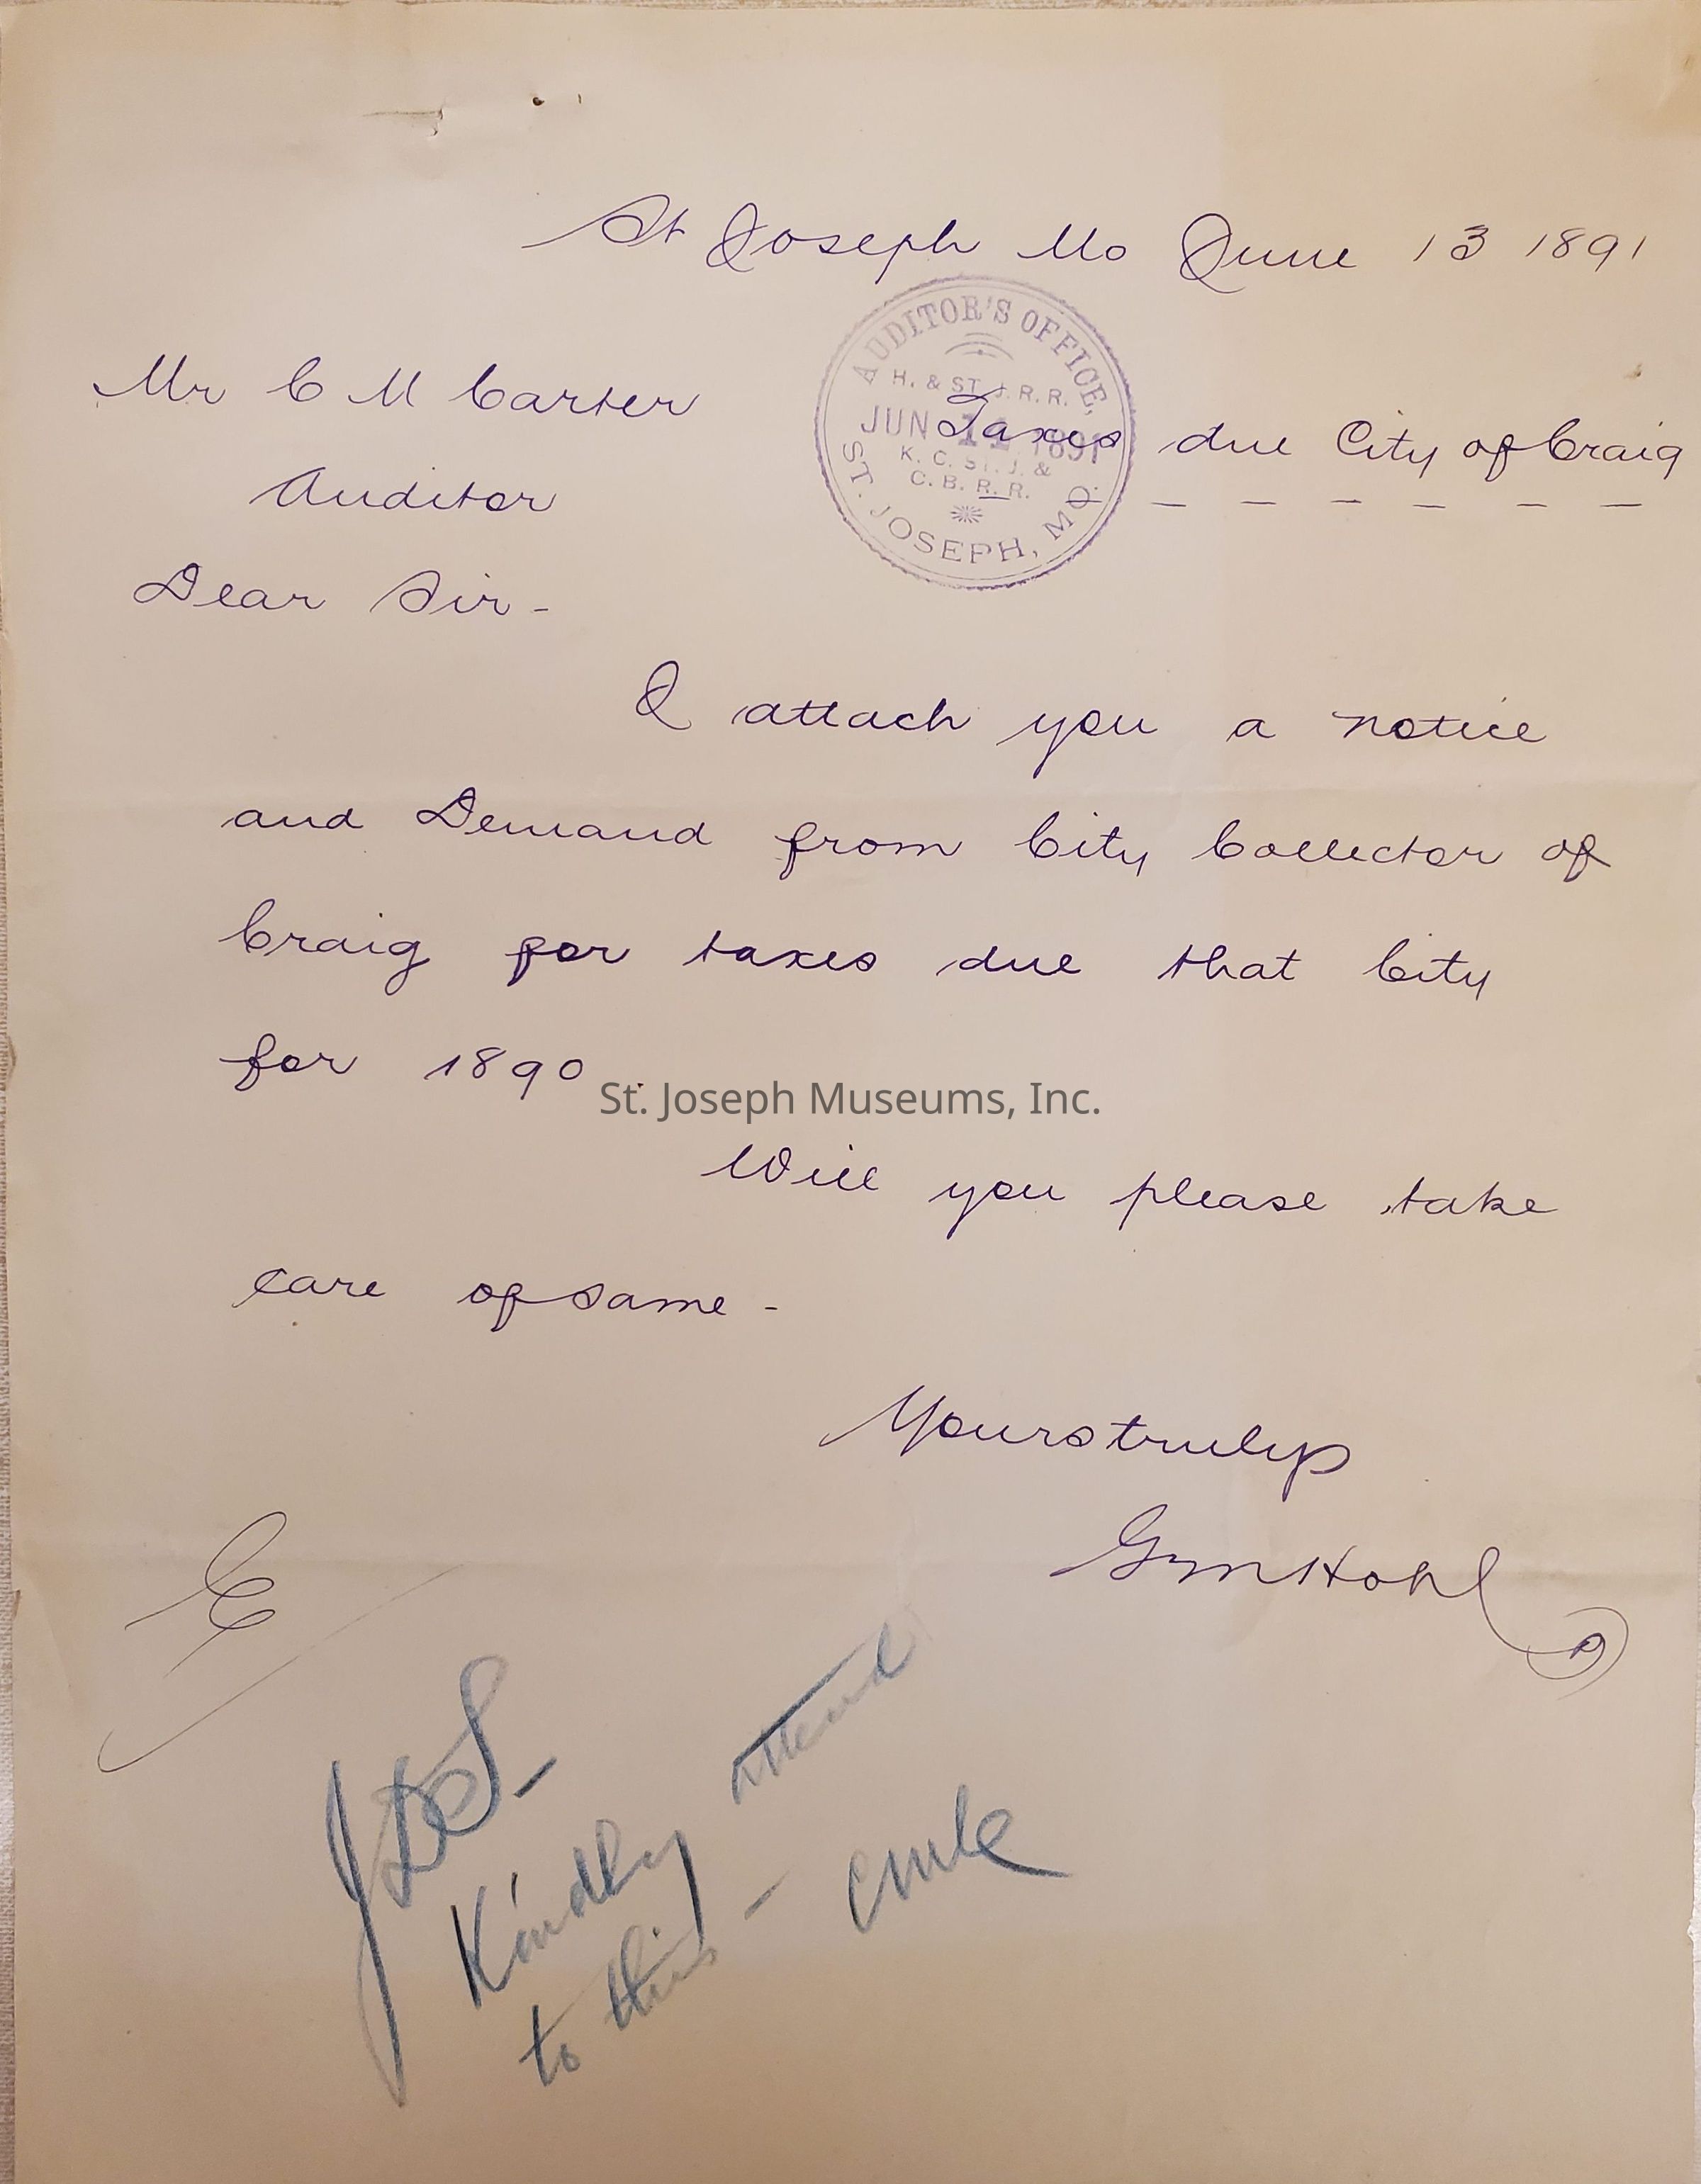 St Joseph Mo June 13 1891
AUDITOR'S OFFICE,
H. & ST. J. R. R.
JUN 1891
K. C. ST. J. &
C. B. R. R.
ST. JOSEPH, MO.
Mr C M Carter
Taxes due City of Craig
Auditor
Dear Sir -
I attach you a notice
and Demand from City Collector of
Craig for taxes due that City
for 1890.
St. Joseph Museums, Inc.
Will you please take
care of same -
Yours truly
Hohl
JDS -
Kindly attend
to this -